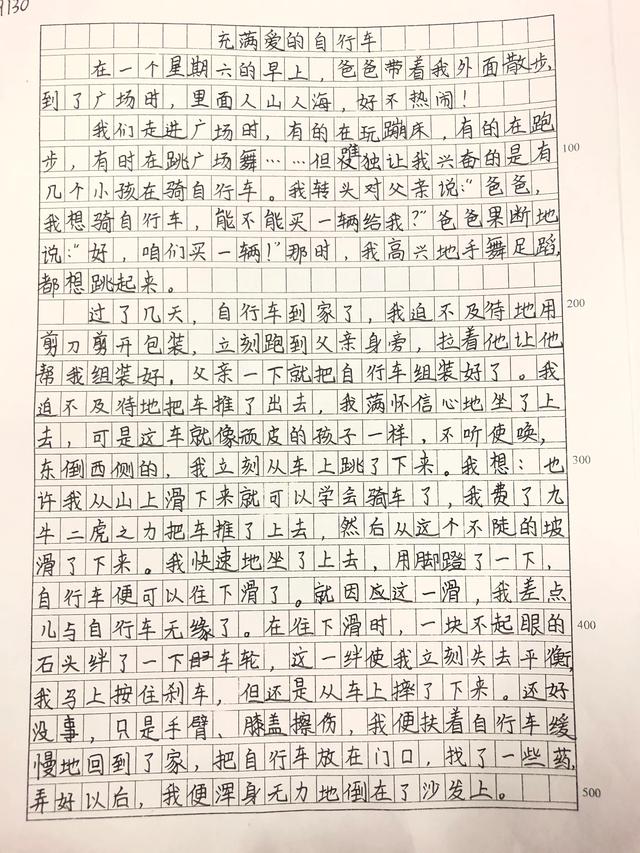 9130
充满爱的自行车
在一个星期六的早上，爸爸带着我外面散步，
到了广场时，里面人山人海，好不热闹！
我们走进广场时，有的在玩蹦床，有的在跑
100
步，有时在跳广场舞……但唯独让我兴奋的是有
几个小孩在骑自行车。我转头对父亲说：“爸爸，
我想骑自行车，能不能买一辆给我？”爸爸果断地
说：“好，咱们买一辆！”那时，我高兴地手舞足蹈，
都想跳起来。
过了几天，自行车到家了，我迫不及待地用
200
剪刀剪开包装，立刻跑到父亲身旁，拉着他让他
帮我组装好，父亲一下就把自行车组装好了。我
迫不及待地把车推了出去，我满怀信心地坐了上
去，可是这车就像顽皮的孩子一样，不听使唤，
东倒西侧的，我立刻从车上跳了下来。我想：也
300
许我从山上滑下来就可以学会骑车了，我费了九
牛二虎之力把车推了上去，然后从这个不陡的坡
滑了下来。我快速地坐了上去，用脚蹬了一下，
自行车便可以往下滑了。就因应这一滑，我差点
儿与自行车无缘了。在往下滑时，一块不起眼的
400
石头绊了一下车轮，这一绊使我立刻失去平衡，
我马上按住刹车，但还是从车上摔了下来。还好
没事，只是手臂、膝盖擦伤，我便扶着自行车缓
慢地回到了家，把自行车放在门口，找了一些药，
弄好以后，我便浑身无力地倒在了沙发上。
500